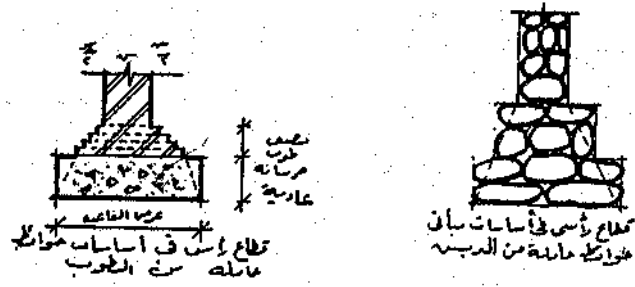 س/٢ س س/٢
قصص
طوب
خرسانة
عادية
عرض القاعدة
قطاع رأسى فى أساسات حوائط
حاملة من الطوب
قطاع رأسى فى أساسات مبانى
حوائط حاملة من الدبش